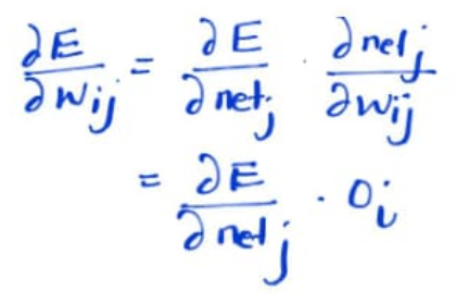 ∂E/∂w_ij = ∂E/∂net_j · ∂net_j/∂w_ij
= ∂E/∂net_j · o_i